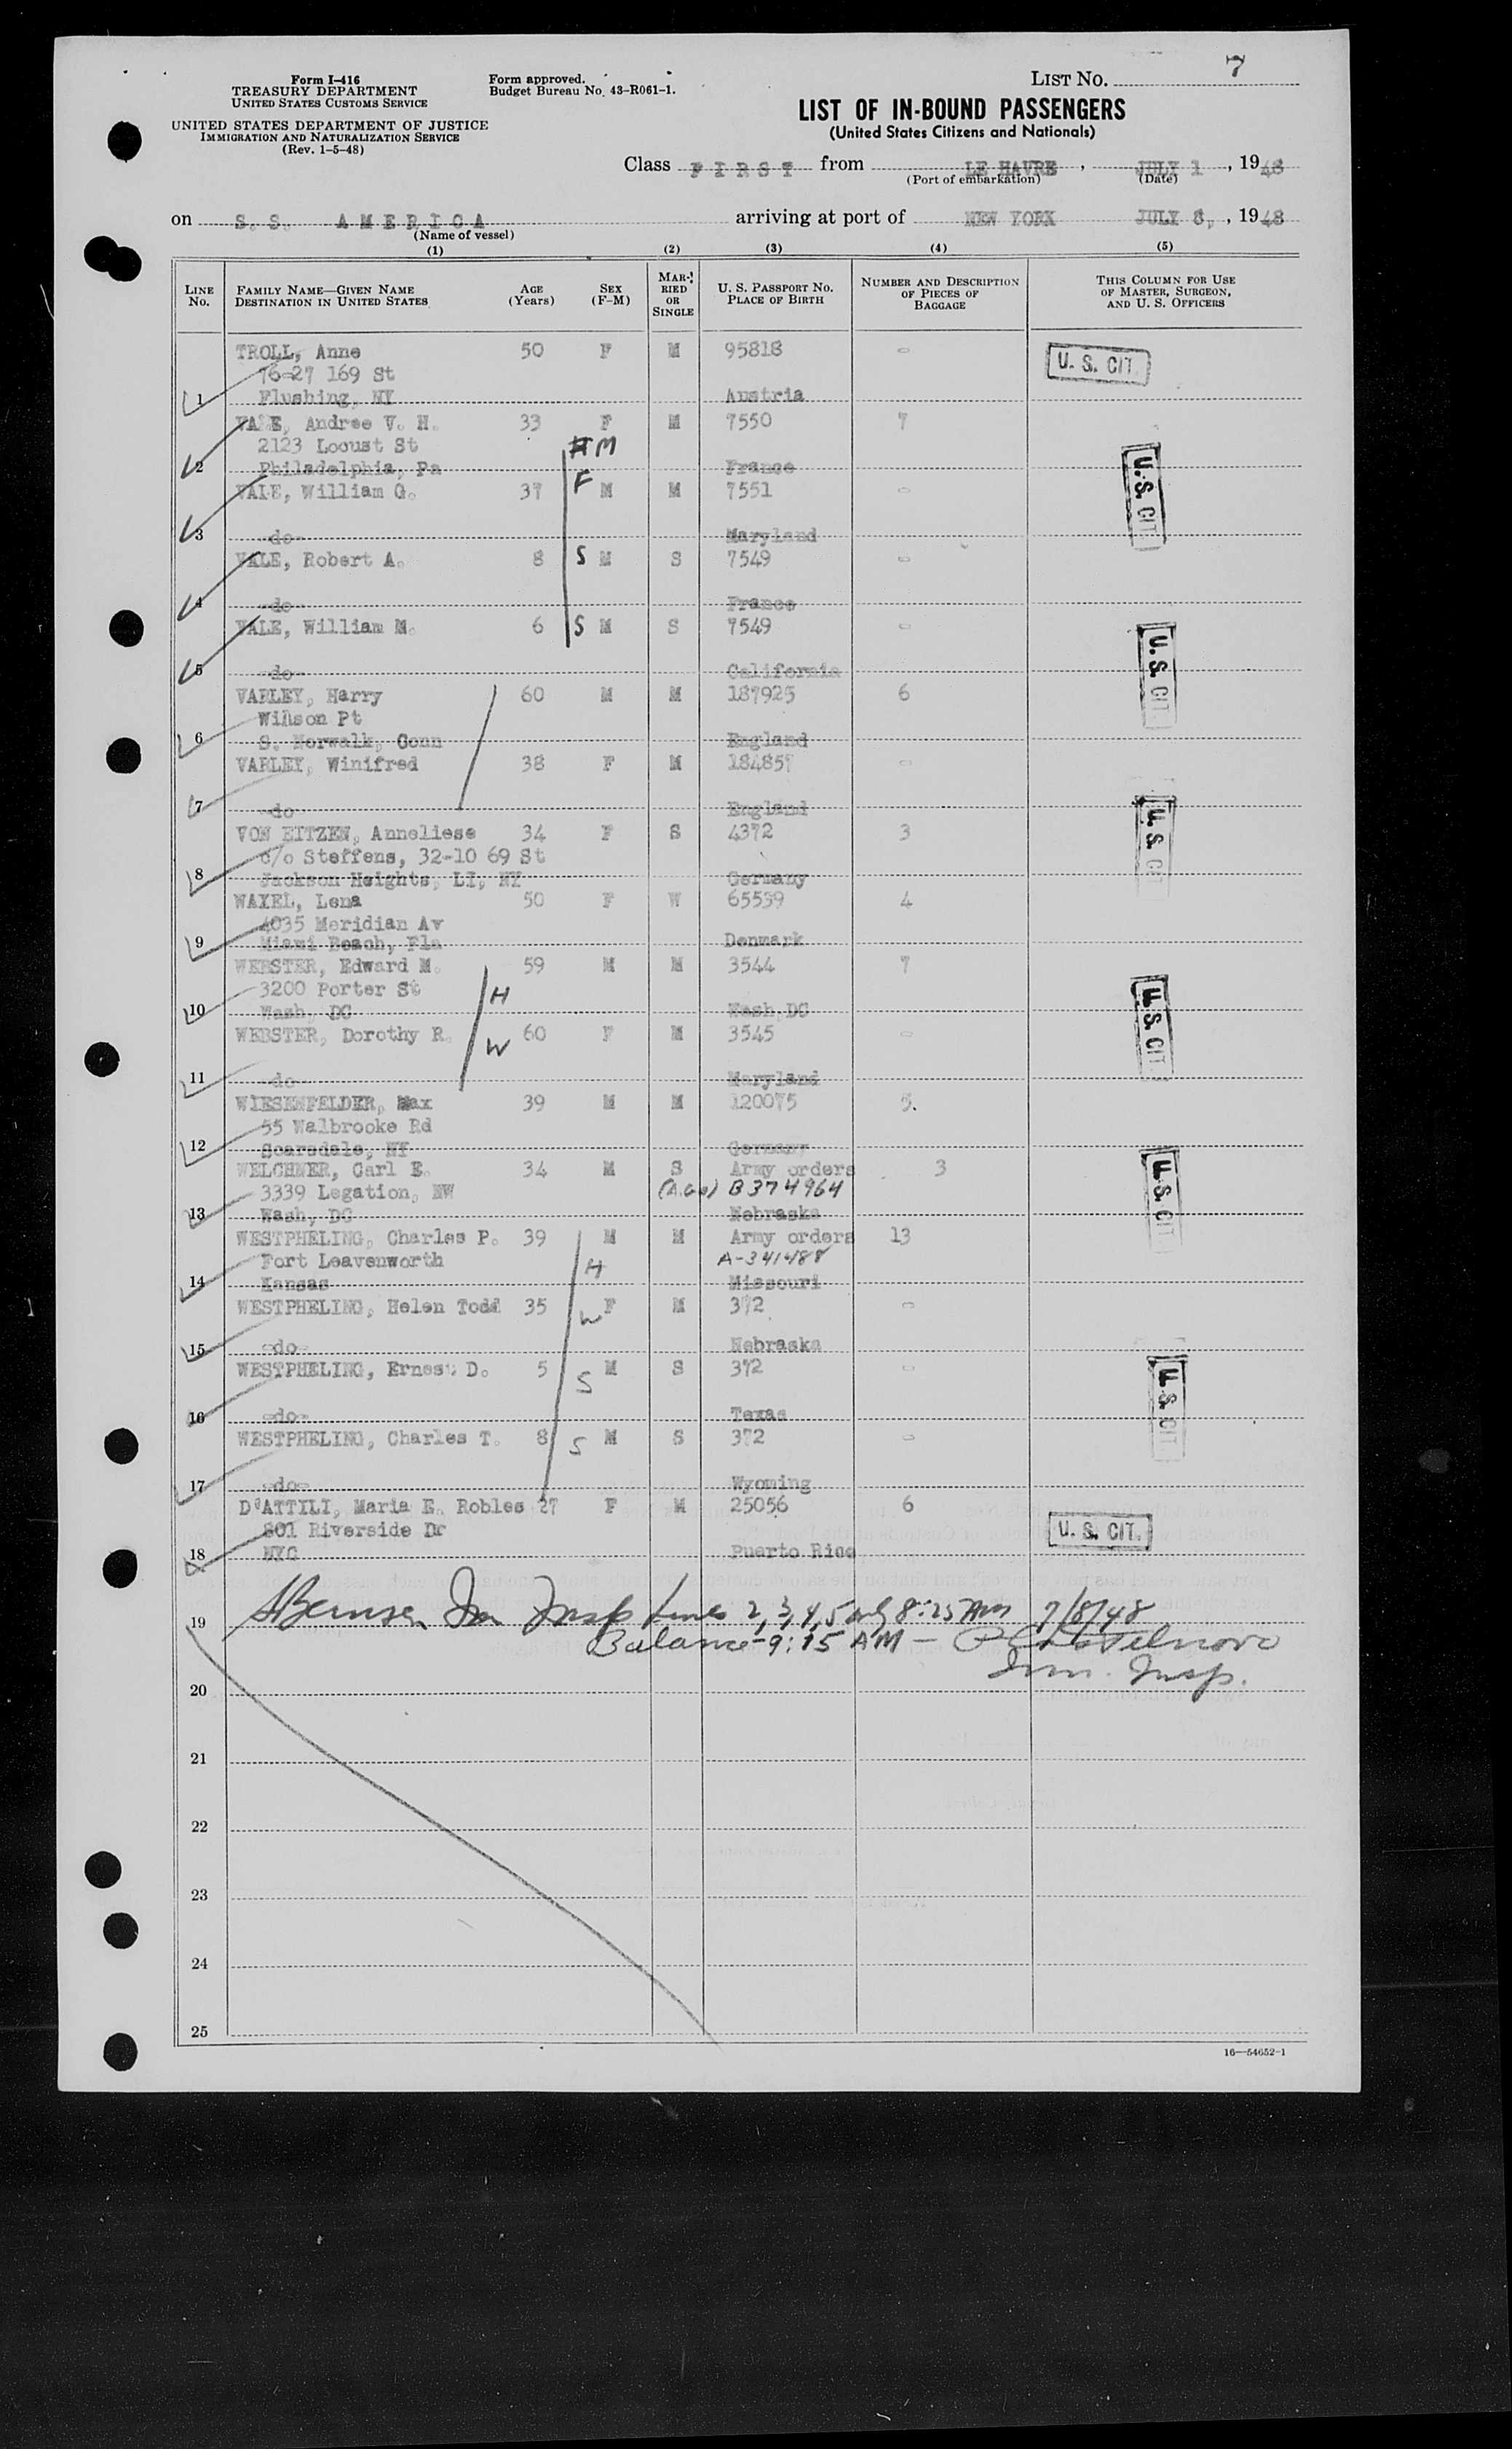 Form I-416
TREASURY DEPARTMENT
UNITED STATES CUSTOMS SERVICE
UNITED STATES DEPARTMENT OF JUSTICE
IMMIGRATION AND NATURALIZATION SERVICE
(Rev. 1-5-48)
Form approved.
Budget Bureau No. 43-R061-1.
LIST NO. 7
LIST OF IN-BOUND PASSENGERS
(United States Citizens and Nationals)
Class FIRST from LE HAVRE, JULY 1, 1948
(Port of embarkation) (Date)
on S. S. AMERICA arriving at port of NEW YORK JULY 8, 1948
(Name of vessel)
(1) (2) (3) (4) (5)
LINE NO. FAMILY NAME—GIVEN NAME DESTINATION IN UNITED STATES AGE (Years) SEX (F-M) MARRIED OR SINGLE U. S. PASSPORT NO. PLACE OF BIRTH NUMBER AND DESCRIPTION OF PIECES OF BAGGAGE THIS COLUMN FOR USE OF MASTER, SURGEON, AND U. S. OFFICERS
TROLL, Anne 50 F M 95818 -
76-27 169 St U. S. CIT.
1 Flushing, NY Austria
VALE, Andree V. H. 33 F M 7550 7
2123 Locust St H M
2 Philadelphia, Pa France U. S. CIT.
VALE, William G. 37 F M M 7551 -
3 -do- Maryland
VALE, Robert A. 8 S M S 7549 -
4 -do- France
VALE, William M. 6 S M S 7549 -
5 -do- California U. S. CIT.
VARLEY, Harry 60 M M 187925 6
Wilson Pt
6 S. Norwalk, Conn England
VARLEY, Winifred 38 F M 184857 -
7 -do- England
VON EITZEN, Anneliese 34 F S 4372 3 U. S. CIT.
c/o Steffens, 32-10 69 St
8 Jackson Heights, LI, NY Germany
WAXEL, Lena 50 F W 65539 4
4035 Meridian Av
9 Miami Beach, Fla Denmark
WEBSTER, Edward M. 59 M M 3544 7
3200 Porter St H
10 Wash, DC Wash, DC U. S. CIT.
WEBSTER, Dorothy R. W 60 F M 3545 -
11 -do- Maryland
WIESENFELDER, Max 39 M M 120075 5.
55 Walbrooke Rd
12 Scarsdale, NY Germany
WELCHNER, Carl E. 34 M S Army orders 3
3339 Legation, NW (A.G.O) B374964 U. S. CIT.
13 Wash, DC Nebraska
WESTPHELING, Charles P. 39 M M Army orders 13
Fort Leavenworth H A-341488
14 Kansas Missouri
WESTPHELING, Helen Todd 35 W F M 372 -
15 -do- Nebraska
WESTPHELING, Ernest D. 5 S M S 372 -
16 -do- Texas U. S. CIT.
WESTPHELING, Charles T. 8 S M S 372 -
17 -do- Wyoming
D'ATTILI, Maria E. Robles 27 F M 25056 6
801 Riverside Dr U. S. CIT.
18 NYC Puerto Rico
19 Im Insp Lines 2, 3, 4, 5 only 8:25 AM 7/8/48
Balance - 9:15 AM -
Imm. Insp.
20
21
22
23
24
25
16—54652-1